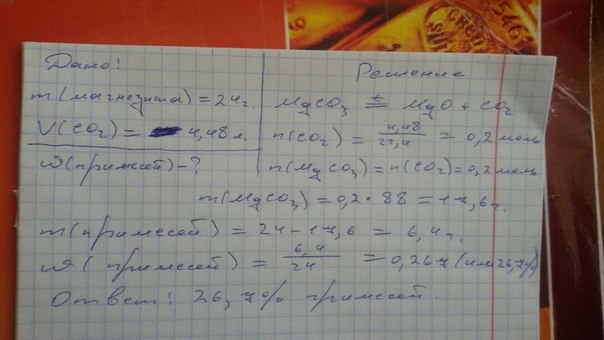 Дано:
m(магнезита) = 24г.
V(CO₂) = 4,48л.
ω(примесей) - ?
Решение
MgCO₃ t= MgO + CO₂
n(CO₂) = 4,48/22,4 = 0,2 моль
n(MgCO₃) = n(CO₂) = 0,2 моль
m(MgCO₃) = 0,2 • 88 = 17,6г.
m(примесей) = 24 - 17,6 = 6,4г.
ω(примесей) = 6,4/24 = 0,267 (или 26,7%)
Ответ: 26,7% примесей.